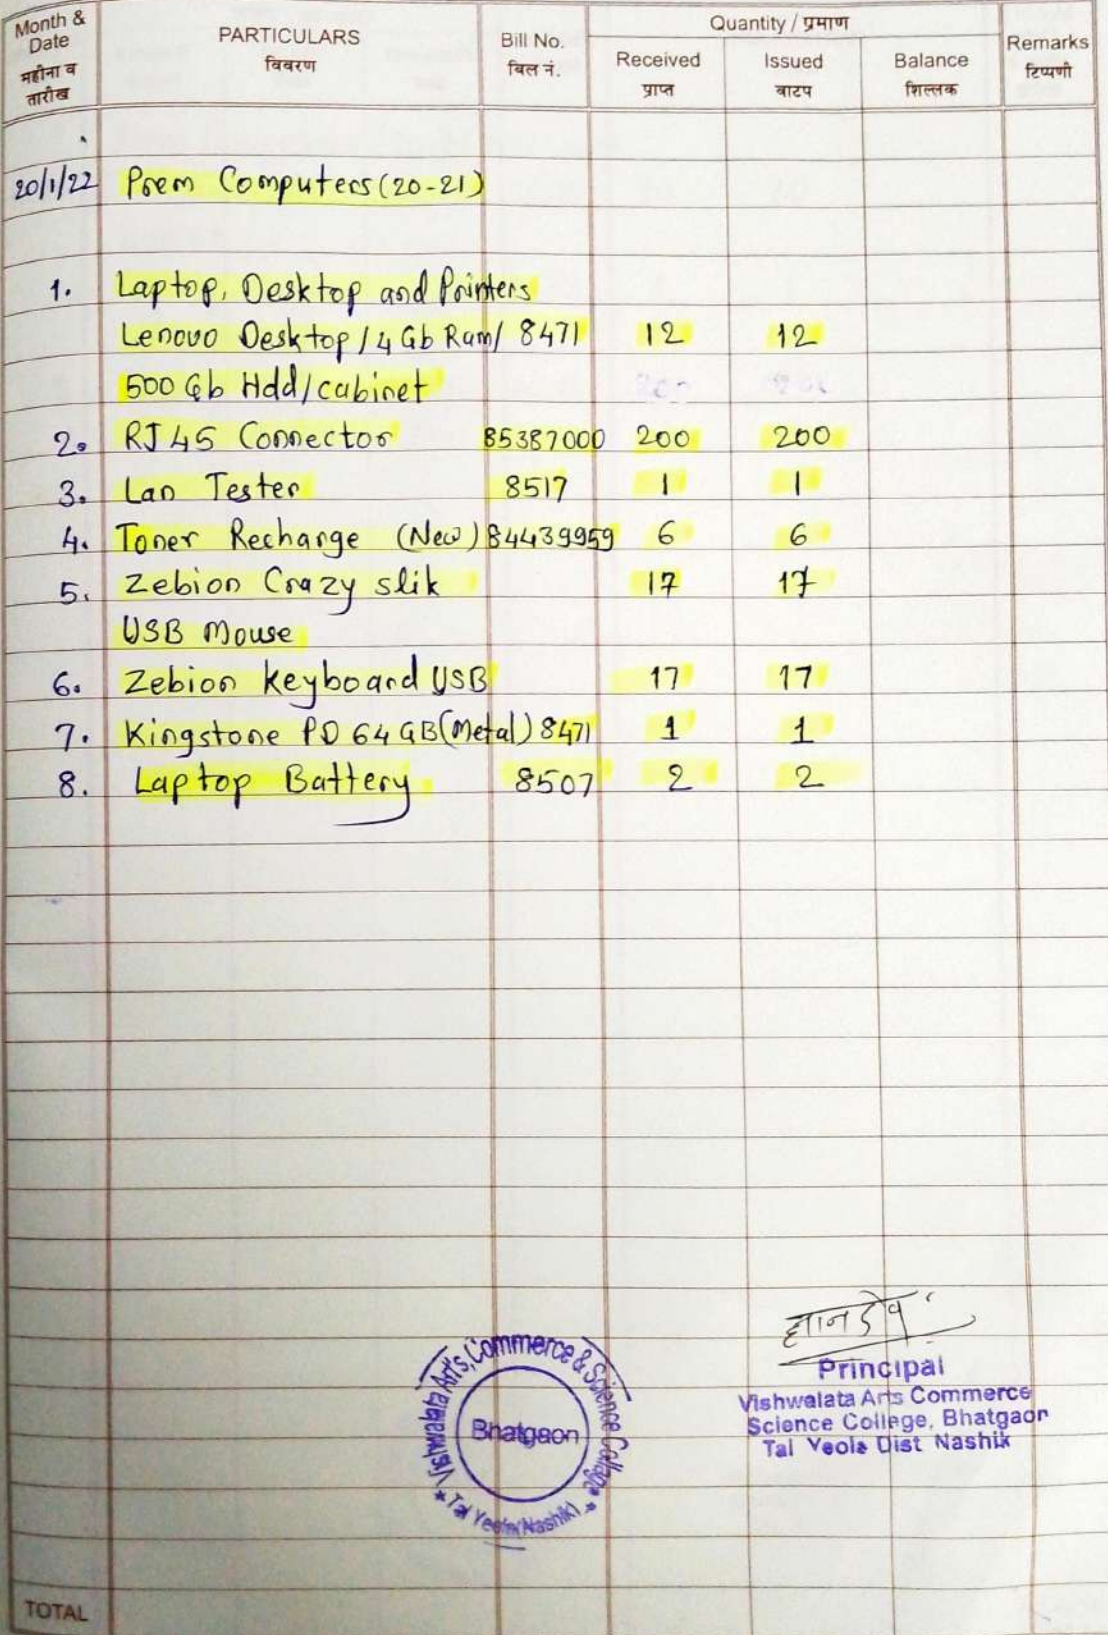 Month & Date महीना व तारीख | PARTICULARS विवरण | Bill No. बिल नं. | Quantity / प्रमाण | Remarks टिप्पणी
Received प्राप्त | Issued वाटप | Balance शिल्लक
20/1/22 Prem Computers (20-21)
1. Laptop, Desktop and Printers
Lenovo Desktop / 4 Gb Ram/ 8471 12 12
500 Gb Hdd/cabinet
2. RJ 45 Connector 85387000 200 200
3. Lan Tester 8517 1 1
4. Toner Recharge (New) 84439959 6 6
5. Zebion Crazy slik 17 17
USB Mouse
6. Zebion Keyboard USB 17 17
7. Kingstone PD 64 GB (Metal) 8471 1 1
8. Laptop Battery 8507 2 2
Principal
Vishwalata Arts Commerce
Science College, Bhatgaon
Tal Yeola Dist Nashik
Vishwalata Arts, Commerce & Science College
Bhatgaon
* Tal Yeola (Nashik) *
TOTAL